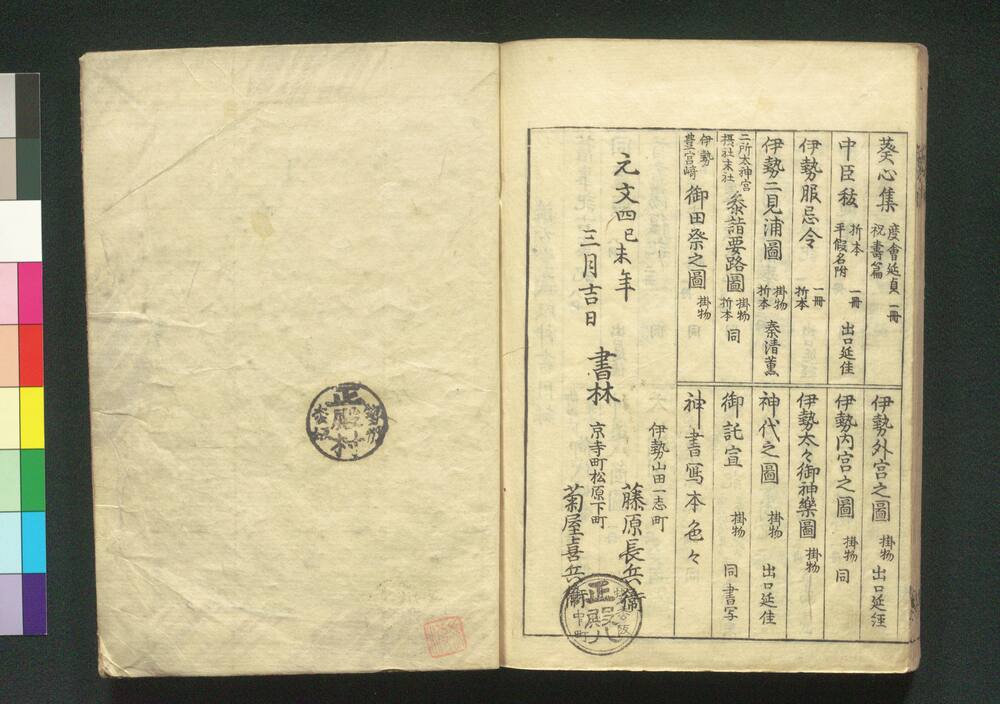 葵心集 度會延貞 祝壽篇 一冊
中臣秡 折本 平假名附 一冊 出口延佳
伊勢服忌令 一冊 折本
伊勢二見浦圖 掛物 折本 秦清薫
二所太神宮 摂社末社 叅詣要路圖 掛物 折本 同
伊勢 豊宮﨑 御田祭之圖 掛物 同
伊勢外宮之圖 掛物 出口延経
伊勢内宮之圖 掛物 同
伊勢太々御神樂圖 掛物
神代之圖 掛物 出口延佳
御託宣 掛物 同書写
神書寫本色々
元文四己未年
三月吉日
書林
伊勢山田一志町
藤原長兵衞
京寺町松原下町
菊屋喜兵衞
正